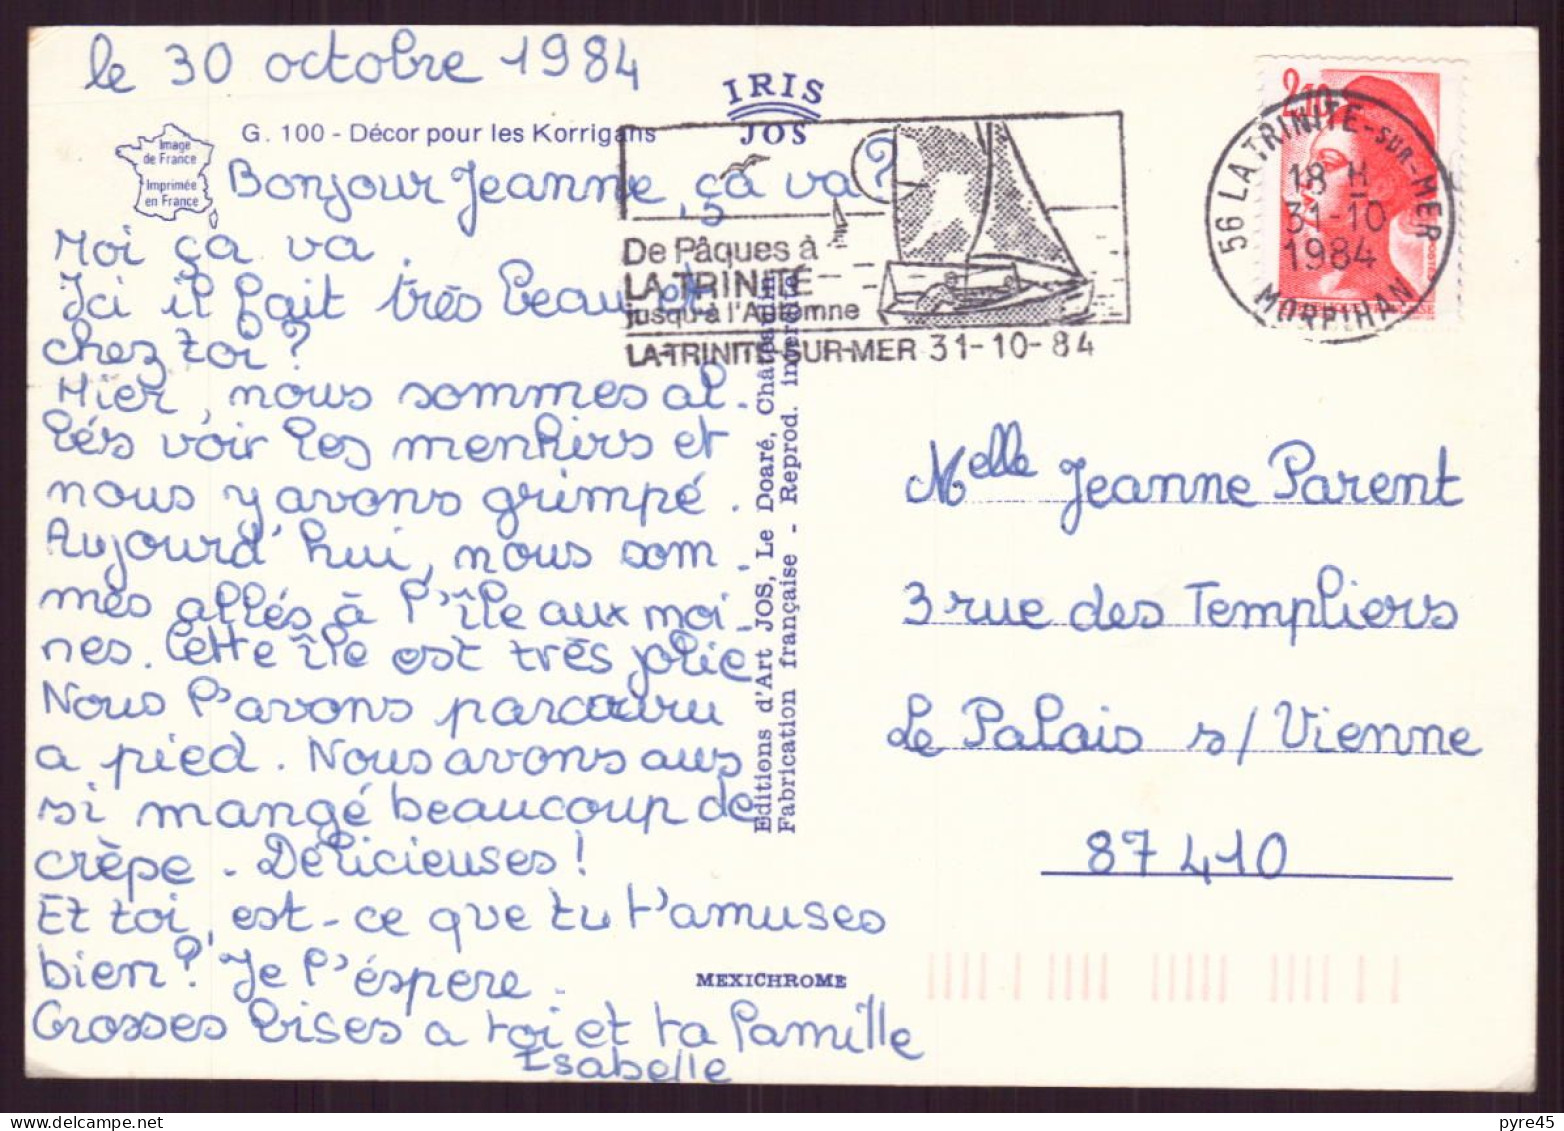 le 30 octobre 1984
IRIS
JOS
G. 100 - Décor pour les Korrigans
Image
de France
Imprimée
en France
Bonjour Jeanne, ça va?
Moi ça va.
Ici il fait très beau et
chez toi?
Hier, nous sommes al-
lés voir les menhirs et
nous y avons grimpé.
Aujourd'hui, nous som-
mes allés à l'île aux moi-
nes. Cette île est très jolie.
Nous l'avons parcouru
a pied. Nous avons aus
si mangé beaucoup de
crèpe. Délicieuses!
Et toi, est-ce que tu t'amuses
bien? Je l'éspere.
Grosses bises a toi et ta famille
Isabelle
De Pâques à
LA TRINITÉ
jusqu'à l'Automne
LA-TRINITE-SUR-MER 31-10-84
Editions d'Art JOS, Le Doaré, Châteaulin
Fabrication française - Reprod. interdite
MEXICHROME
2,10
56 LA TRINITE-SUR-MER
18 H
31-10
1984
MORBIHAN
Melle Jeanne Parent
3 rue des Templiers
Le Palais s/ Vienne
87410
pyre45